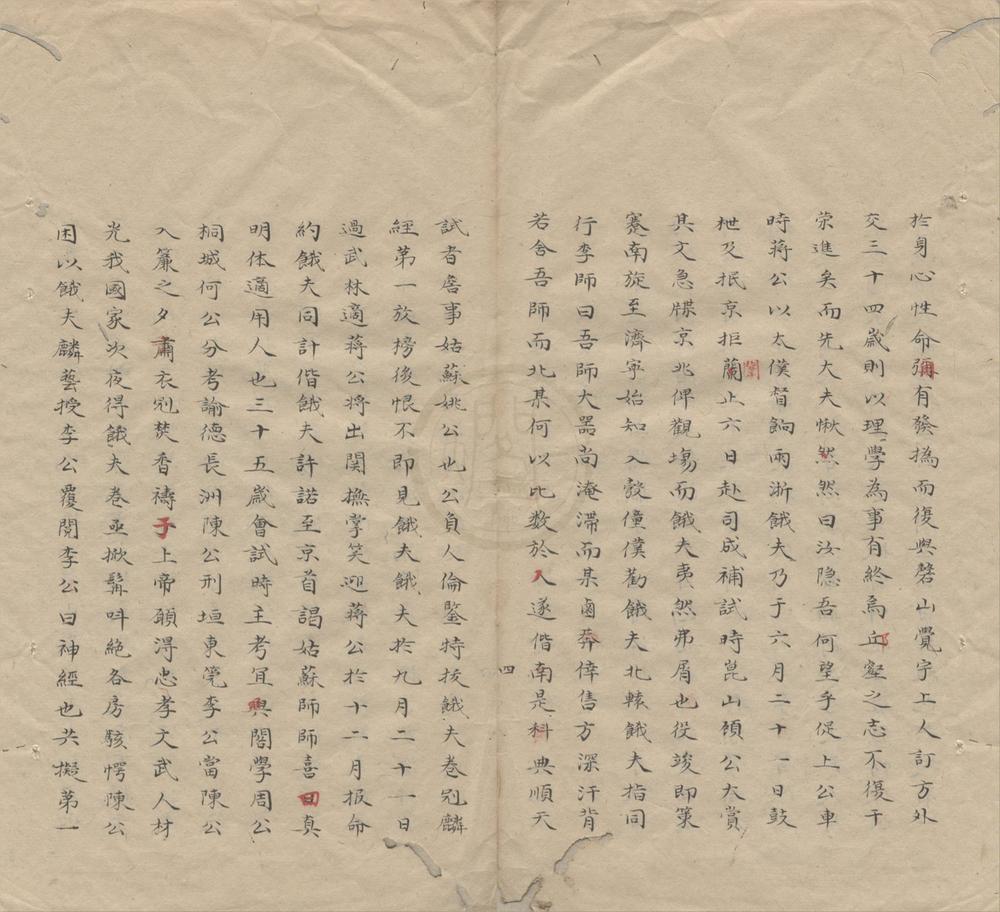 於身心性命彌有發撝而復與磬山覺宇上人訂方外
交三十四歲則以理學為事有終焉丘壑之志不復干
榮進矣而先大夫愀然然曰汝隐吾何望乎促上公車
時蒋公以太僕督餉兩浙餓夫乃于六月二十一日鼓
枻及抵京拒蘭止六日赴司成補試時崑山顧公大賞
闈
其文急牒京兆俾觀塲而餓夫夷然弗屑也役竣即策
蹇南旋至濟寧始知入彀僮僕勸餓夫北轅餓夫指同
行李師曰吾師大器尚淹滯而某鹵莽倖售方深汗背
若舍吾師而北某何以比数於人遂偕南是科典順天
四
試者詹事姑蘇姚公也公負人倫鑒特拔餓夫卷冠麟
經第一放榜後恨不即見餓夫餓夫於九月二十一日
過武林適蒋公將出関撫掌笑迎蒋公於十二月报命
約餓夫同計偕餓夫許諾至京首謁姑蘇師師喜曰真
明体適用人也三十五歲會試時主考宜興閣學周公
桐城何公分考諭德長洲陳公刑垣東筦李公當陳公
入簾之夕肅衣冠焚香禱于上帝願淂忠孝文武人材
光我國家次夜得餓夫卷亟掀髯呌絕各房駭愕陳公
困以餓夫麟藝授李公覆閱李公曰神經也共擬第一